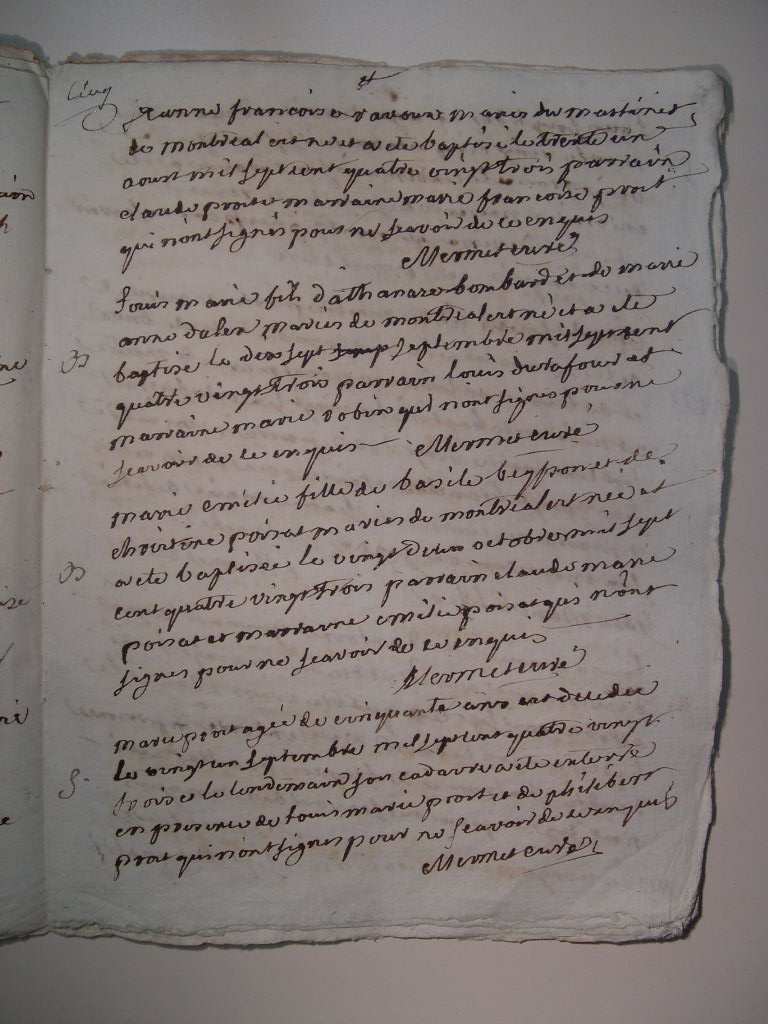 Cinq
et
jeanne francoise ravoux mariés du martinet
de montreal est né et a ete baptisé le trente un
aoust mil sept cent quatre vingt trois parrain
claude proit et marraine marie francoise proit
qui n'ont signés pour ne scavoir de ce enquis
Mermet curé
louis marie fils d'athanaze bombard et de marie
anne dalen mariés de montreal est né et a ete
baptise le dix sept septembre mil sept cent
quatre vingt trois parrain louis durafour et
marraine marie robin qui n'ont signes pour ne
scavoir de ce enquis Mermet curé
B
marie emilie fille de basile beysson et de
poisat mariés de montreal est née et
a ete baptisée le vingt deux octobre mil sept
B
cent quatre vingt trois parrain claude marie
poisat et marraine emilie poisat qui n'ont
signes pour ne scavoir de ce enquis
Mermet curé
marie proit agée de cinquante ans est decedee
le vingt un septembre mil sept cent quatre vingt
S.
trois et le lendemain son cadavre a ete enterré
en presence de louis marie proit et de philibert
proit qui n'ont signes pour ne scavoir de ce enquis
Mermet curé